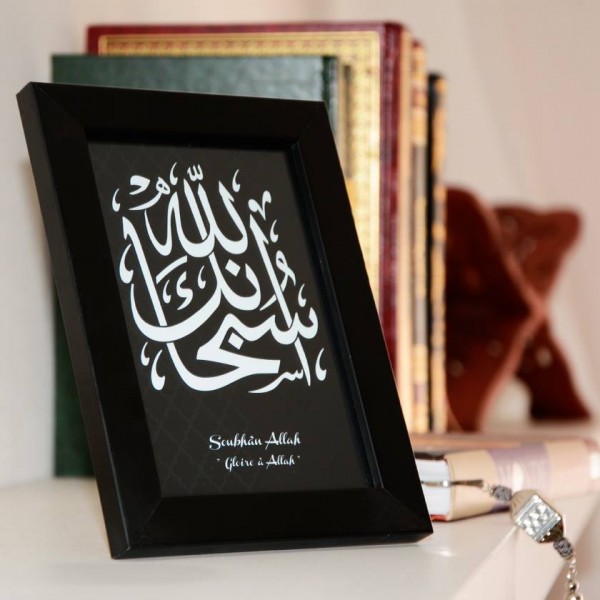 سبحان الله
Soubhân Allah
" Gloire à Allah "